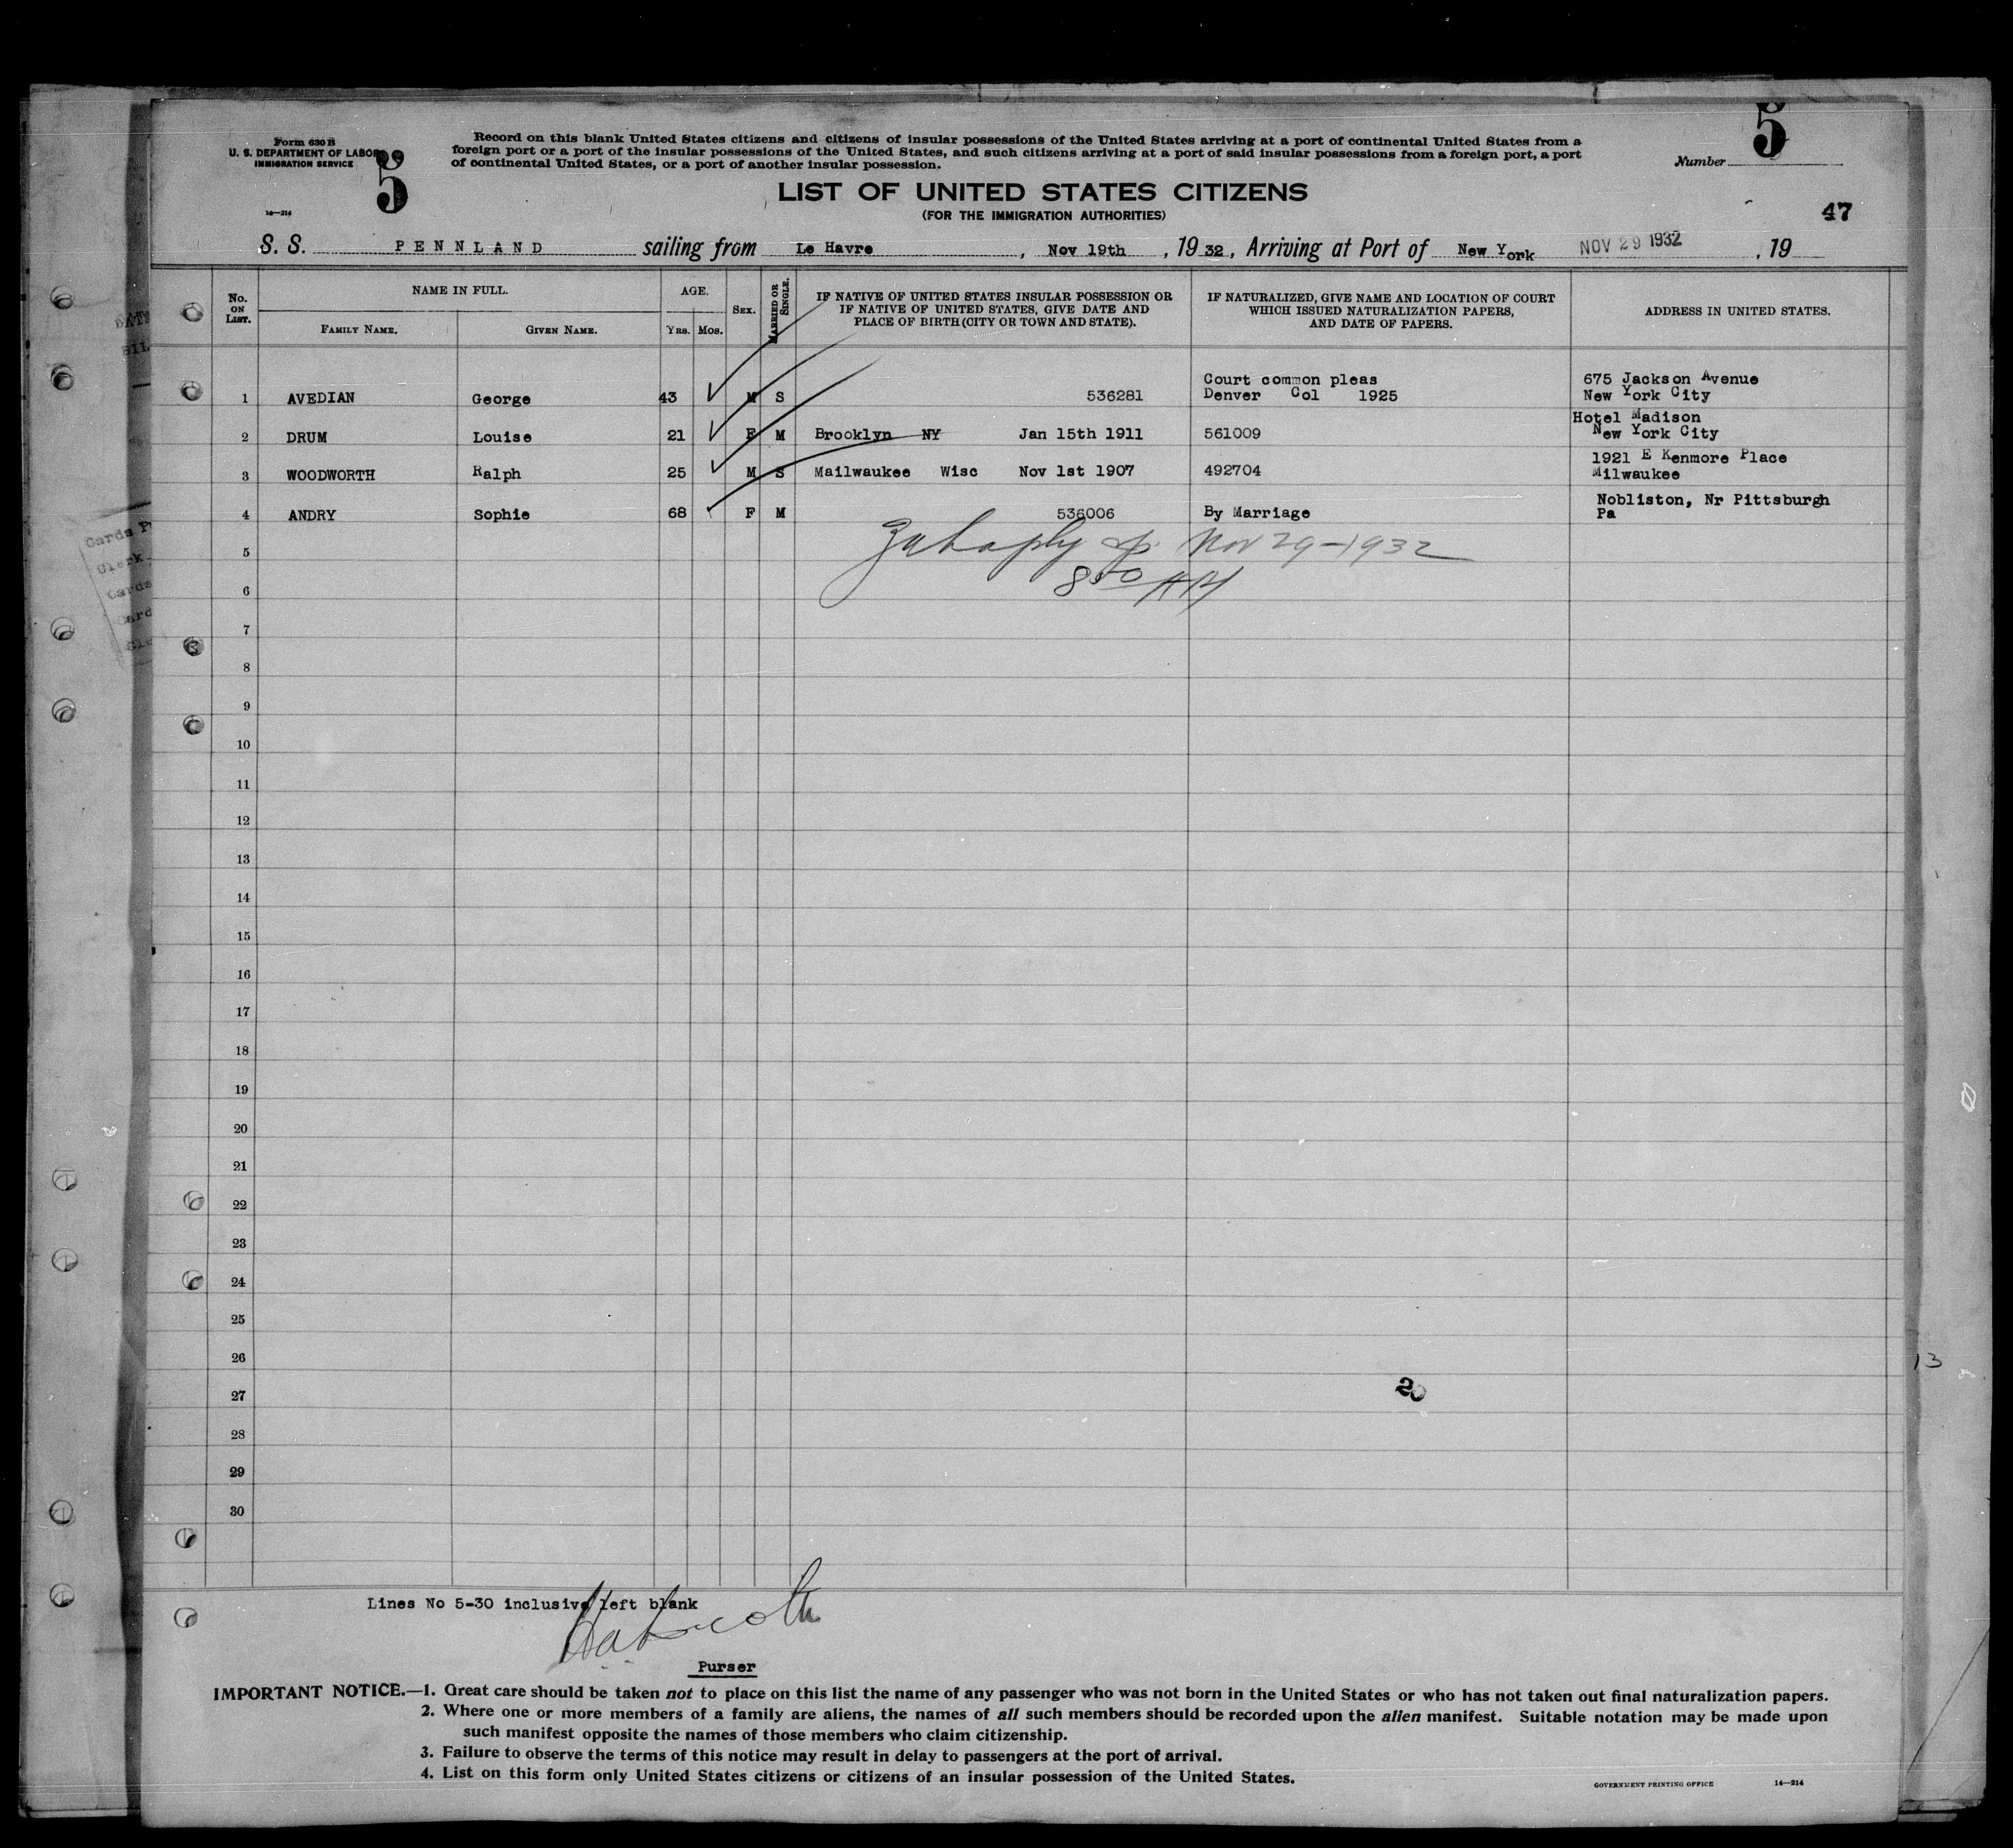 Form 630 B
U. S. DEPARTMENT OF LABOR
IMMIGRATION SERVICE
14—214
5
Record on this blank United States citizens and citizens of insular possessions of the United States arriving at a port of continental United States from a
foreign port or a port of the insular possessions of the United States, and such citizens arriving at a port of said insular possessions from a foreign port, a port
of continental United States, or a port of another insular possession.
Number 5
LIST OF UNITED STATES CITIZENS
(FOR THE IMMIGRATION AUTHORITIES)
47
S. S. PENNLAND sailing from Le Havre, Nov 19th, 19 32, Arriving at Port of New York NOV 29 1932, 19
No. ON LIST.
NAME IN FULL.
FAMILY NAME.
GIVEN NAME.
AGE.
YRS.
MOS.
SEX.
MARRIED OR SINGLE.
IF NATIVE OF UNITED STATES INSULAR POSSESSION OR
IF NATIVE OF UNITED STATES, GIVE DATE AND
PLACE OF BIRTH (CITY OR TOWN AND STATE).
IF NATURALIZED, GIVE NAME AND LOCATION OF COURT
WHICH ISSUED NATURALIZATION PAPERS,
AND DATE OF PAPERS.
ADDRESS IN UNITED STATES.
Court common pleas 675 Jackson Avenue
1 AVEDIAN George 43 M S 536281 Denver Col 1925 New York City
Hotel Madison
2 DRUM Louise 21 F M Brooklyn NY Jan 15th 1911 561009 New York City
1921 E Kenmore Place
3 WOODWORTH Ralph 25 M S Mailwaukee Wisc Nov 1st 1907 492704 Milwaukee
Nobliston, Nr Pittsburgh
4 ANDRY Sophie 68 F M 536006 By Marriage Pa
Nov 29-1932
5
8 50 AM
6
7
8
9
10
11
12
13
14
15
16
17
18
19
20
21
22
23
24
25
26
13
27
28
29
30
Lines No 5-30 inclusive left blank
Purser
IMPORTANT NOTICE.—1. Great care should be taken not to place on this list the name of any passenger who was not born in the United States or who has not taken out final naturalization papers.
2. Where one or more members of a family are aliens, the names of all such members should be recorded upon the alien manifest. Suitable notation may be made upon
such manifest opposite the names of those members who claim citizenship.
3. Failure to observe the terms of this notice may result in delay to passengers at the port of arrival.
4. List on this form only United States citizens or citizens of an insular possession of the United States.
GOVERNMENT PRINTING OFFICE 14—214